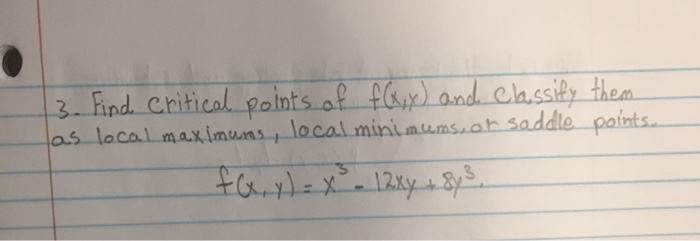 3. Find critical points of f(x,y) and classify them
as local maximums, local minimums, or saddle points.
f(x,y) = x³ - 12xy + 8y³.